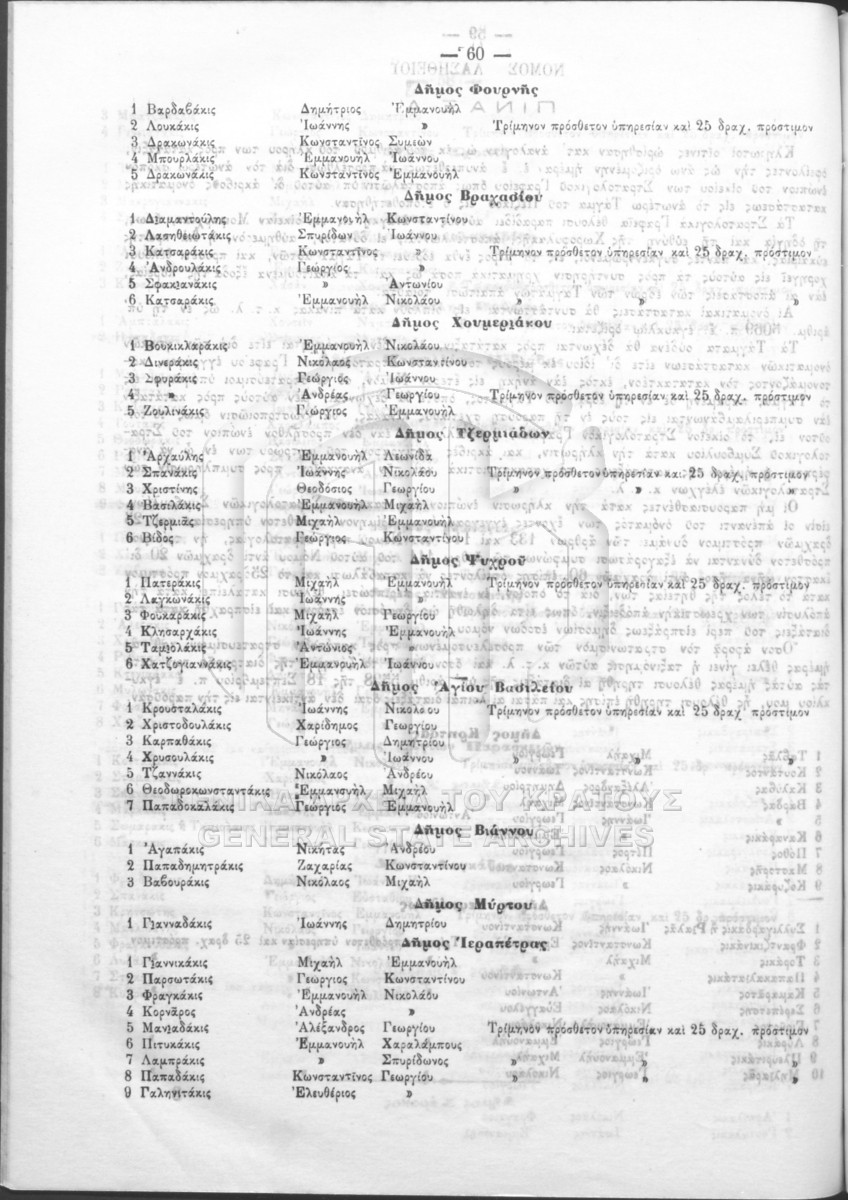 — 60 —
Δῆμος Φουρνῆς
1 Βαρδαβάκις Δημήτριος Ἐμμανουὴλ
2 Λουκάκις Ἰωάννης » Τρίμηνον πρόσθετον ὑπηρεσίαν καὶ 25 δραχ. πρόστιμον
3 Δρακωνάκις Κωνσταντῖνος Συμεὼν
4 Μπουρλάκις Ἐμμανουὴλ Ἰωάννου
5 Δρακωνάκις Κωνσταντῖνος Ἐμμανουὴλ
Δῆμος Βραχασίου
1 Διαμαντούλης Ἐμμανουὴλ Κωνσταντίνου
2 Λασηθειωτάκις Σπυρίδων Ἰωάννου
3 Κατσαράκις Κωνσταντῖνος » Τρίμηνον πρόσθετον ὑπηρεσίαν καὶ 25 δραχ. πρόστιμον
4 Ἀνδρουλάκις Γεώργιος »
5 Σφακιανάκις » Ἀντωνίου
6 Κατσαράκις Ἐμμανουὴλ Νικολάου » » »
Δῆμος Χουμεριάκου
1 Βουκικλαράκις Ἐμμανουὴλ Νικολάου
2 Δινεράκις Νικόλαος Κωνσταντίνου
3 Σφυράκις Γεώργιος Ἰωάννου
4 » Ἀνδρέας Γεωργίου Τρίμηνον πρόσθετον ὑπηρεσίαν καὶ 25 δραχ. πρόστιμον
5 Ζουλινάκις Γεώργιος Ἐμμανουὴλ
Δῆμος Τζερμιάδων
1 Ἀρχαύλης Ἐμμανουὴλ Λεωνίδα
2 Σπανάκις Ἰωάννης Νικολάου Τρίμηνον πρόσθετον ὑπηρεσίαν καὶ 25 δραχ. πρόστιμον
3 Χριστίνης Θεοδόσιος Γεωργίου » » » »
4 Βασιλάκις Ἐμμανουὴλ Μιχαὴλ
5 Τζερμιᾶς Μιχαὴλ Ἐμμανουὴλ
6 Βίδος Γεώργιος Κωνσταντίνου
Δῆμος Ψυχροῦ
1 Πατεράκις Μιχαὴλ Ἐμμανουὴλ Τρίμηνον πρόσθετον ὑπηρεσίαν καὶ 25 δραχ. πρόστιμον
2 Λαγκωνάκις Ἰωάννης »
3 Φουκαράκις Μιχαὴλ Γεωργίου
4 Κλησαρχάκις Ἰωάννης Ἐμμανουὴλ
5 Ταμιολάκις Ἀντώνιος »
6 Χατζογιαννάκις Ἐμμανουὴλ Ἰωάννου
Δῆμος Ἁγίου Βασιλείου
1 Κρουσταλάκις Ἰωάννης Νικολάου Τρίμηνον πρόσθετον ὑπηρεσίαν καὶ 25 δραχ. πρόστιμον
2 Χριστοδουλάκις Χαρίδημος Γεωργίου
3 Καρπαθάκις Γεώργιος Δημητρίου
4 Χρυσουλάκις » Ἰωάννου » » »
5 Τζαννάκις Νικόλαος Ἀνδρέου
6 Θεοδωροκωνσταντάκις Ἐμμανουὴλ Μιχαὴλ
7 Παπαδοκαλάκις Γεώργιος Ἐμμανουὴλ
ΓΕΝΙΚΑ ΑΡΧΕΙΑ ΤΟΥ ΚΡΑΤΟΥΣ
GENERAL STATE ARCHIVES
Δῆμος Βιάννου
1 Ἀγαπάκις Νικήτας Ἀνδρέου
2 Παπαδημητράκις Ζαχαρίας Κωνσταντίνου
3 Βαβουράκις Νικόλαος Μιχαὴλ
Δῆμος Μύρτου
1 Γιανναδάκις Ἰωάννης Δημητρίου
Δῆμος Ἱεραπέτρας
1 Γιαννικάκις Μιχαὴλ Ἐμμανουὴλ
2 Παρσωτάκις Γεώργιος Κωνσταντίνου
3 Φραγκάκις Ἐμμανουὴλ Νικολάου
4 Κορνᾶρος Ἀνδρέας »
5 Μανιαδάκις Ἀλέξανδρος Γεωργίου Τρίμηνον πρόσθετον ὑπηρεσίαν καὶ 25 δραχ. πρόστιμον
6 Πιτυκάκις Ἐμμανουὴλ Χαραλάμπους
7 Λαμπράκις » Σπυρίδωνος » » »
8 Παπαδάκις Κωνσταντῖνος Γεωργίου » » »
9 Γαληνιτάκις Ἐλευθέριος »